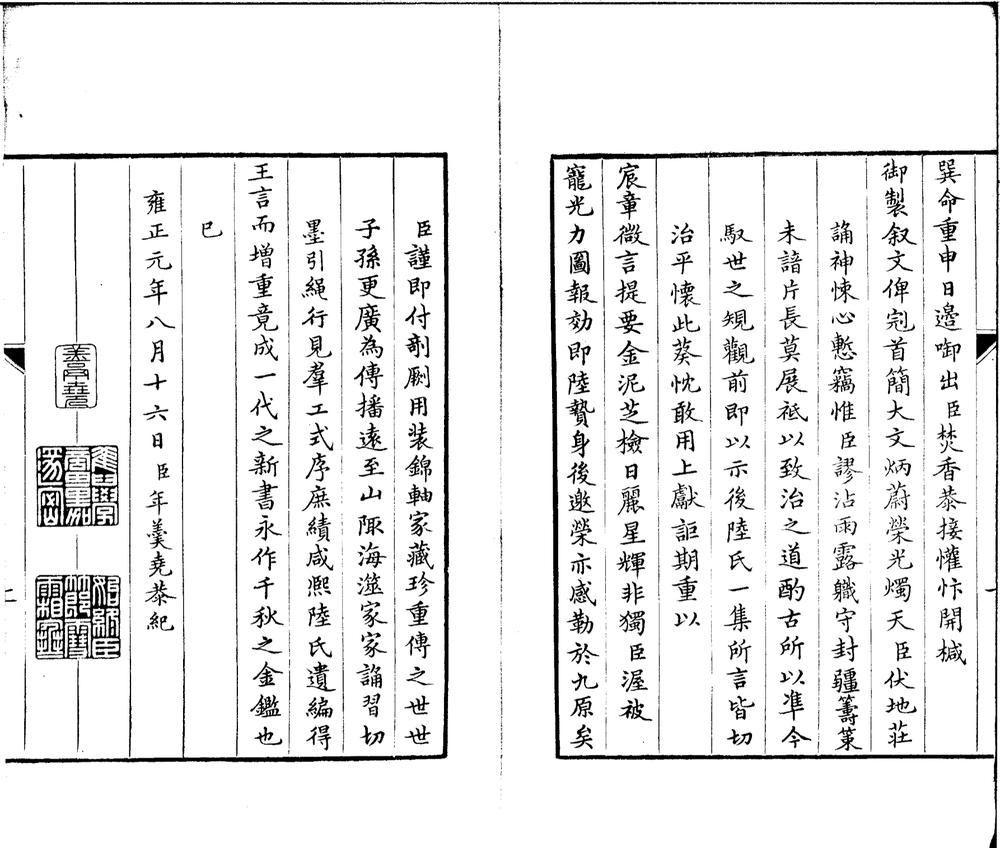 巽命重申日邉啣出臣焚香恭接懽忭開椷
御製叙文俾冠首簡大文炳蔚榮光燭天臣伏地莊
誦神悚心慙竊惟臣謬沾雨露職守封疆籌策
未諳片長莫展祇以致治之道酌古所以凖今
馭世之規觀前即以示後陸氏一集所言皆切
治平懷此葵忱敢用上獻詎期重以
宸章微言提要金泥芝檢日麗星輝非獨臣渥被
寵光力圖報効即陸贄身後邀榮亦感勒於九原矣
臣謹即付剞劂用装錦軸家藏珍重傳之世世
子孫更廣為傳播遠至山陬海澨家家誦習切
墨引繩行見羣工式序庶績咸熈陸氏遺編得
王言而增重竟成一代之新書永作千秋之金鑑也
已
雍正元年八月十六日臣年羹堯恭紀